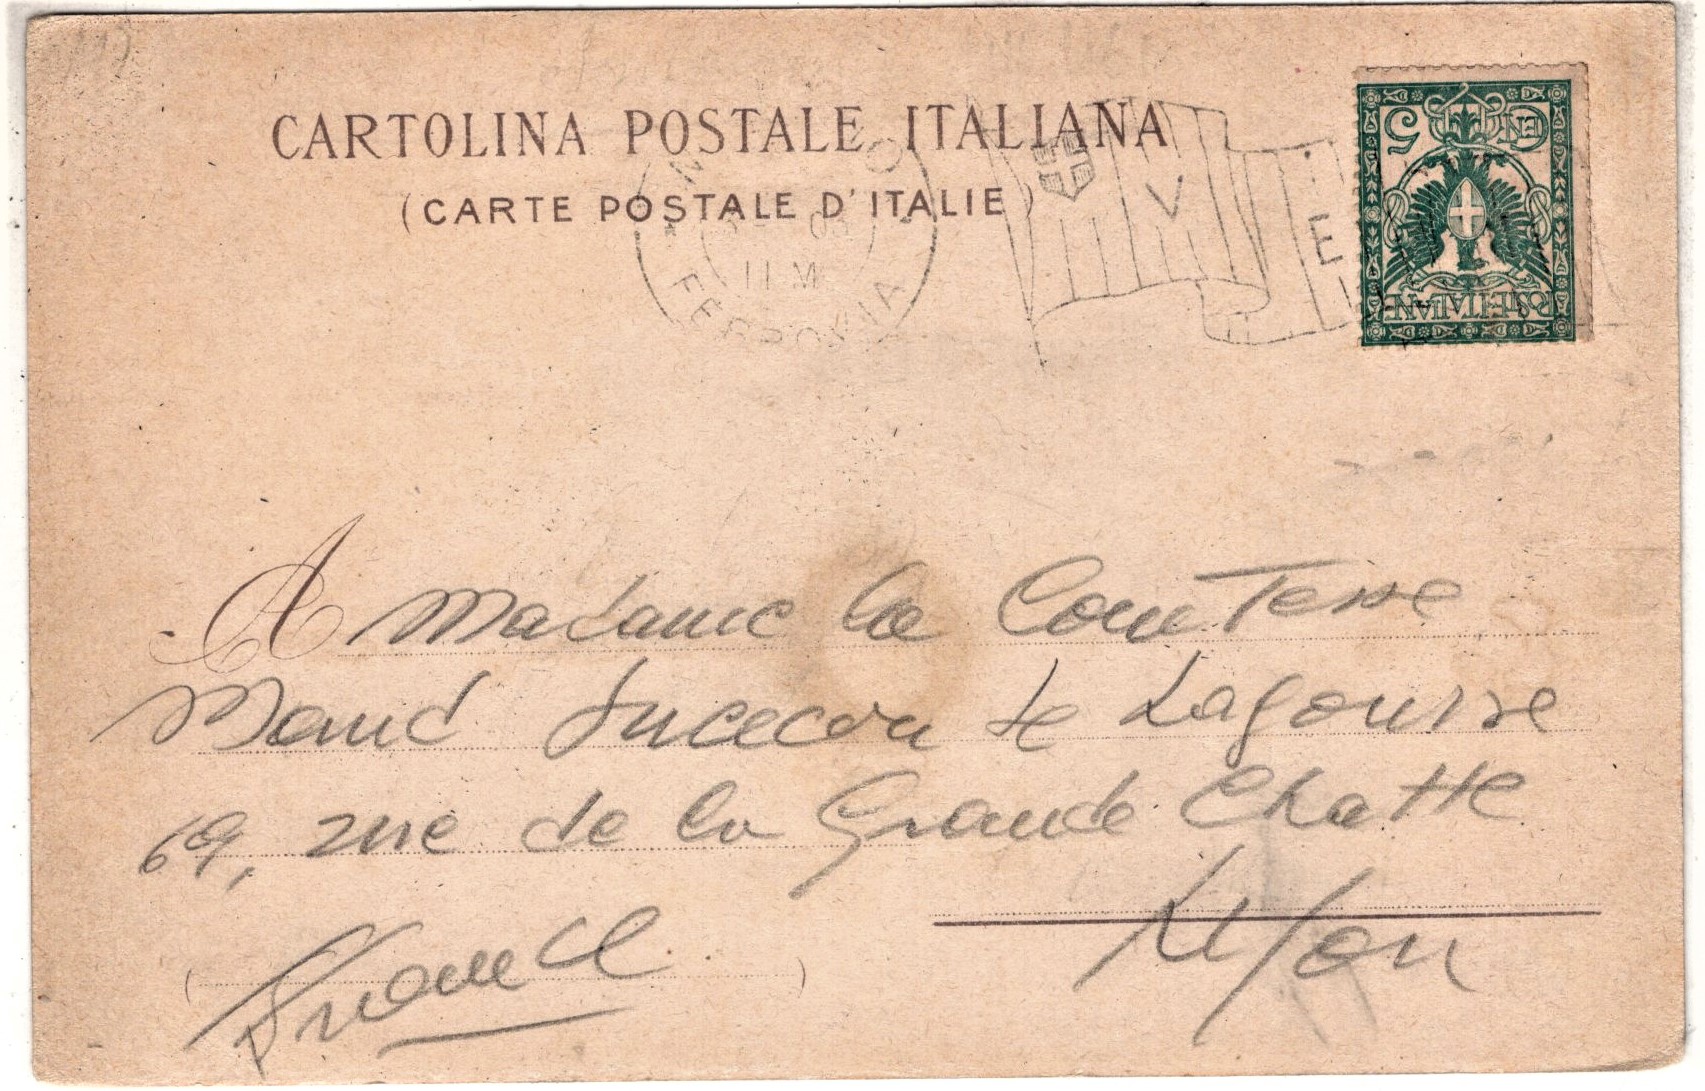 CARTOLINA POSTALE ITALIANA
(CARTE POSTALE D'ITALIE)
CEN. 5
POSTE ITALIANE
FERROVIA
V
E
A Madame la Comtesse
de Lagousse
69, rue de la Grande Chatte
Lyon
France